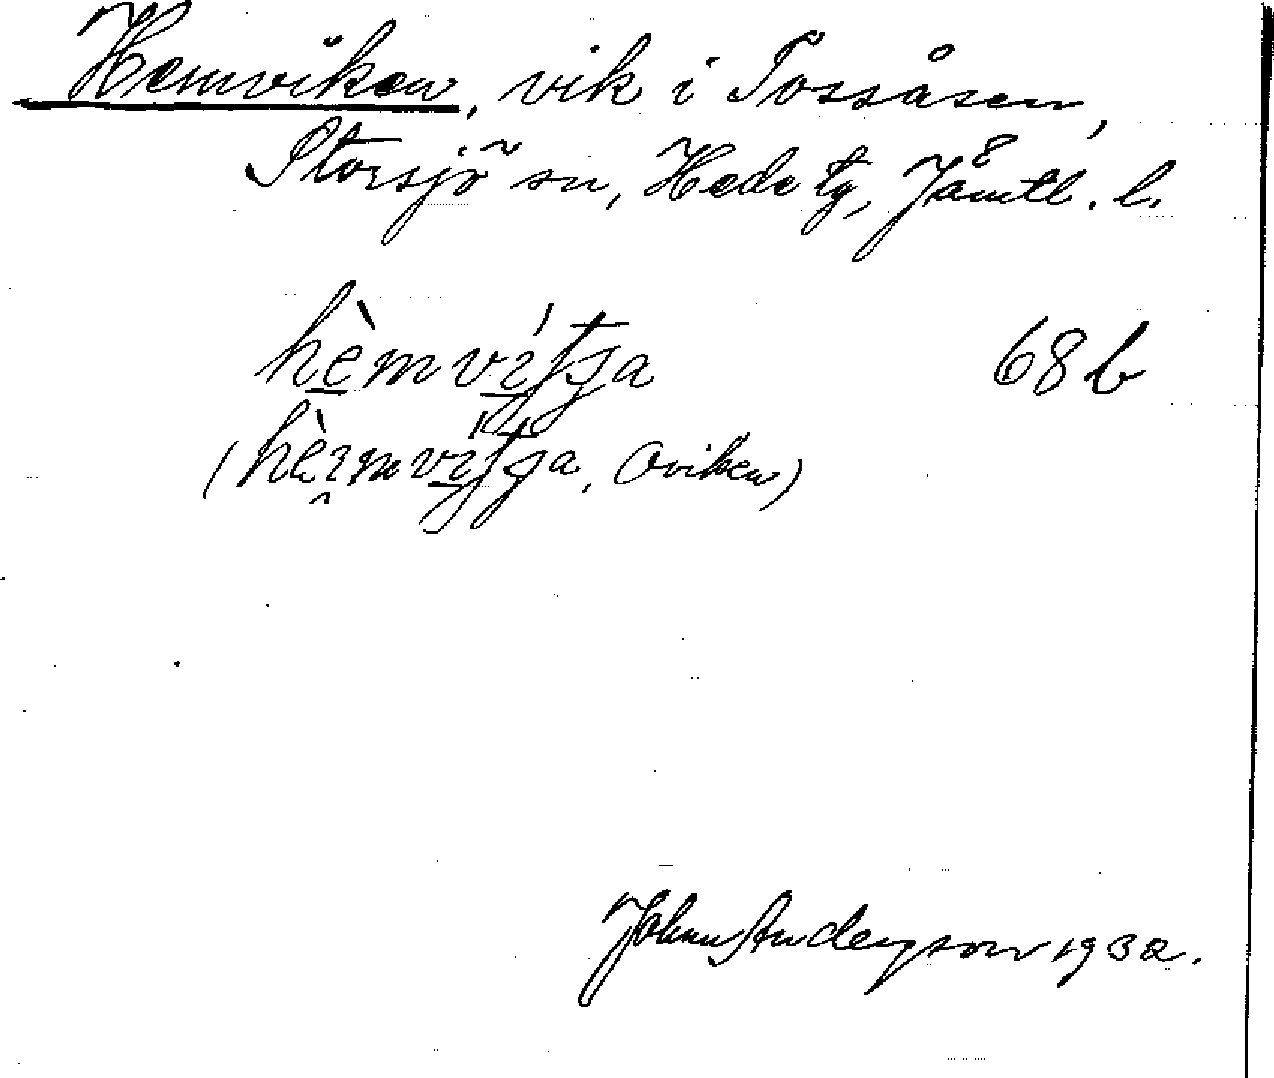 Hemviken, vik i Tossåsen,
Storsjö sn, Hede tg, Jämtl. l.
hèmvítʃa 68 b
(Oviken)
John Anderson 1932.